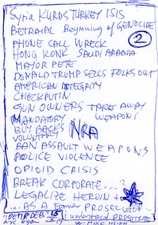 Syria KURDS TURKEY ISIS
BETRAYAL Beginning of GENOCIDE
PHONE CALL WRECK
2
HONG KONG SAUDI ARABIA
MAYOR PETE
DONALD TRUMP SELLS FOLKS OUT
AMERICAN INTEGRITY
CHECK PUTIN
GUN OWNERS TAKE AWAY
MANDATORY WEAPONS
BUY BACKS
NRA
VOLUNTARY
BAN ASSAULT WEAPONS
POLICE VIOLENCE
OPIOID CRISIS
BREAK CORPORATE...?
LEGALIZE HEROIN
... AS A Former PROSECUTOR...
DEM DEB
I understand